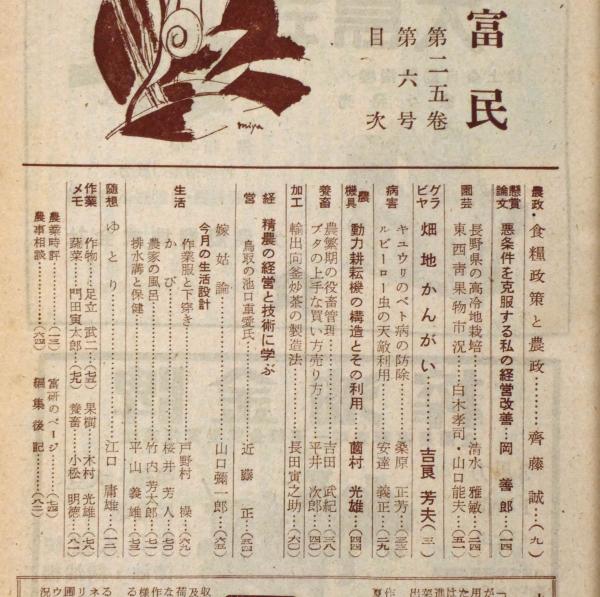 富民
第二五巻
第六号
目次
miya
農政・食糧政策と農政………齊藤誠…(九)
懸賞論文 悪条件を克服する私の経営改善…岡善郎…(一四)
園芸 長野県の高冷地栽培………清水雅敏…(二四)
東西青果物市況…白木孝司・山口能夫…(五一)
グラビヤ 畑地かんがい………吉良芳夫(三)
病害 キユウリのベト病の防除………桑原正芳…(三三)
ルビーロー虫の天敵利用………安達義正…(二九)
農機具 動力耕耘機の構造とその利用…薗村光雄…(四四)
養畜 農繁期の役畜管理………吉田武紀…(三八)
ブタの上手な買い方売り方…平井次郎…(四〇)
加工 輸出向釜炒茶の製造法………長田寅之助…(六〇)
経営 精農の経営と技術に学ぶ
鳥取の池口重愛氏………近藤正…(五四)
嫁姑論………山口彌一郎…(六五)
今月の生活設計
生活 作業服と下穿き………戸野村操…(六九)
かび………桜井芳人…(七〇)
農家の風呂………竹内芳太郎…(七一)
排水溝と保健………平山義雄…(七三)
随想 ゆとり………江口庸雄…(一二)
作業メモ 作物…足立武二…(七五) 果樹…木村光雄…(七八)
蔬菜…門田寅太郎…(七九) 養畜…小松明徳…(八一)
農業時評………(一三) 富研のページ…(七四)
農事相談………(六四) 編集後記…(八二)